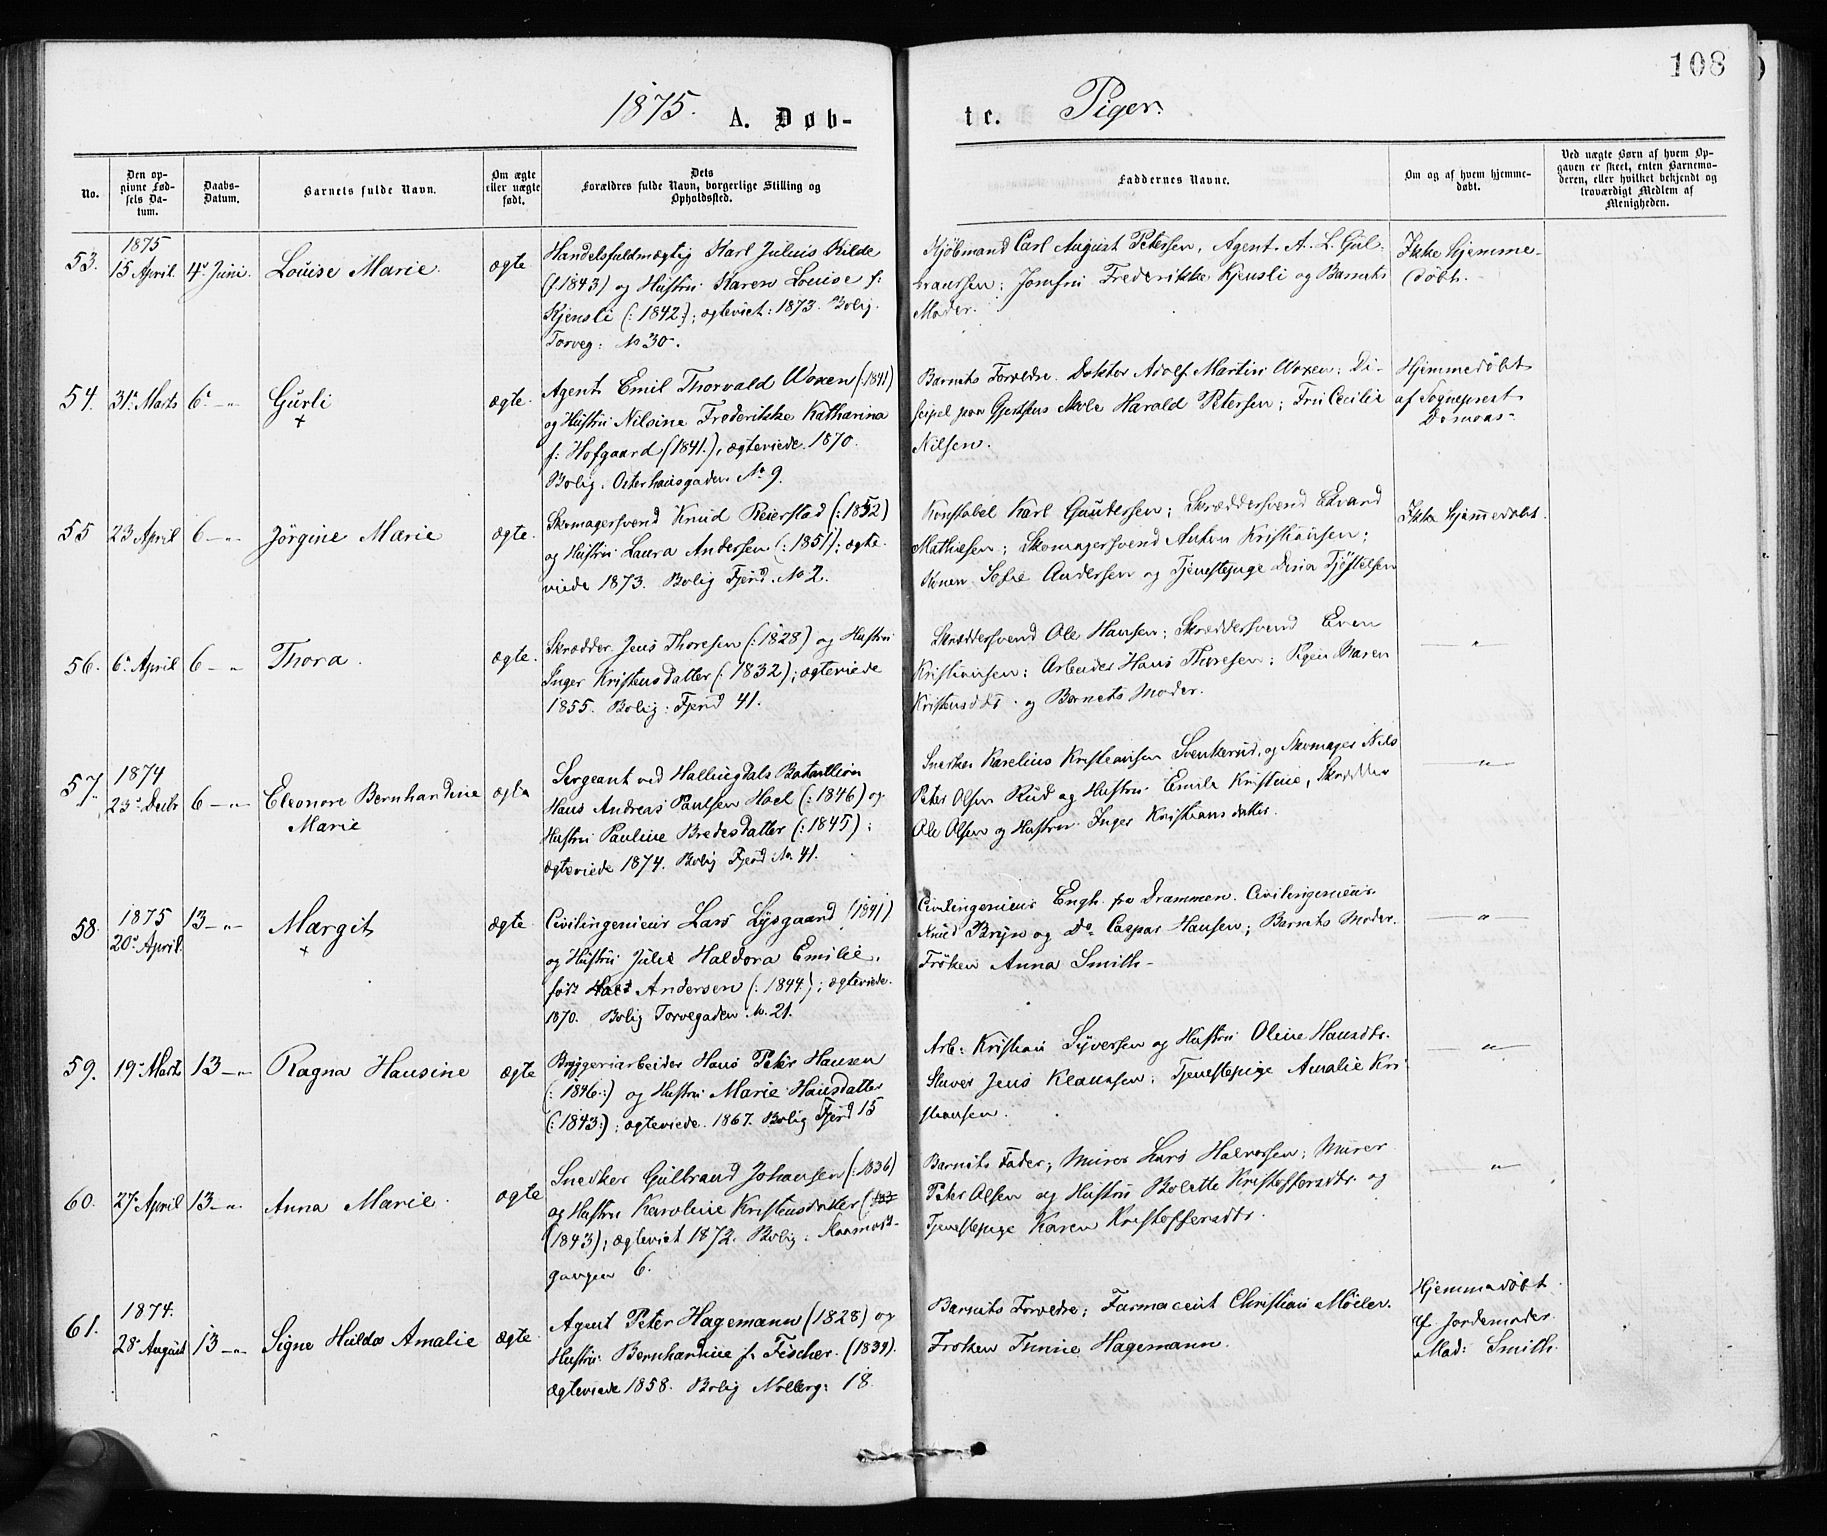 108
1875. A. Døb-
te. Piger.
No.
Den op-
givne Fød-
sels Da-
tum.
Daabs-
Datum.
Barnets fulde Navn.
Om ægte
eller uægte
født.
Dets
Forældres fulde Navn, borgerlige Stilling og
Opholdssted.
Faddernes Navne.
Om og af hvem hjemme-
døbt.
Ved uægte Børn af hvem Op-
gaven er skeet, enten Barnemo-
deren, eller hvilket bekjendt og
troværdigt Medlem af
Menigheden.
53.
1875
15 April.
4de Juni
Louise Marie.
ægte
Handelsfuldmægtig Karl Julius Kilde
(:1843) og Hustru Karen Louise f:
Kjensli (:1842:); ægteviet: 1873. Bolig.
Torveg: No 30.
Kjøbmand Carl August Petersen, Agent A. L. Gul-
branssen; Jomfru Frederikke Kjensli og Barnets
Moder.
Ikke Hjemme-
døbt.
54.
31te Marts
6te -"-
Gurli
+
ægte.
Agent Emil Thorvald Woxen (:1841)
og Hustru Nilsine Frederikke Katharina
f: Hofgaard (1841.), ægteviede. 1870.
Bolig. Osterhausgaden No 9.
Barnets Forældre. Doktor Adolf Martin Woxen; Di-
scipel paa Gjertsens Skole Harald Petersen; Fru Cecilie
Nilsen.
Hjemmedøbt
af Sogneprest
55
23 April
6 -"-
Jörgine Marie
ægte.
Skomagersvend Knud Reierstad (:1852)
og Hustru Laura Andersen (:1851); ægte-
viede 1873. Bolig Fjerd. No 2.
Konstabel Karl Gautersen; Skræddersvend Edvard
Mathiesen; Skomagersvend Anton Kristiansen;
Konen Sofie Andersen og Tjenestepige Dina Tjöstelsen
Ikke Hjemmedøbt.
56.
6te April
6 - "
Thora.
ægte.
Skrædder Jens Thoresen (:1828) og Hustru
Inger Kristensdatter (:1832); ægteviede
1855. Bolig: Fjerd 41.
Skræddersvend Ole Hansen; Skræddersvend Even
Kristiansen; Arbeider Hans Thoresen; Pigen Maren
Kristensdtr. og Barnets Moder.
-"-
57.
1874
23de Decbr
6 -"-
Eleonore Bernhardine
Marie
ægte
Sergeant ved Hallingdals Bataillion
Hans Andreas Paulsen Hoel (:1846) og
Hustru Pauline Bredesdatter (:1845);
ægteviede 1874. Bolig Fjerd No. 41.
Snedker Karelius Kristiansen Svenkerud, og Skomager Nils
Peter Olsen Rud og Hustru Emile Kristine, Skrædder
Ole Olsen og Hustru Inger Kristiansdatter.
-"-
58.
1875
20de April
13 -"-
Margit
+
ægte
Civilingenieur Lars Lysgaard (1841)
og Hustru Julie Haldora Emilie,
født Andersen (:1844.); ægteviede.
1870. Bolig Torvegaden: No. 21.
Civilingenieur Engh fra Drammen. Civilingenieur
Knud Bryn og Do Caspar Hansen; Barnets Moder.
Frøken Anna Smith-
-"-
59.
19de Marts
13 -"-
Ragna Hansine
ægte
Bryggeriarbeider Hans Peter Hansen
(:1846:) og Hustru Marie Hansdatter
(:1843:); ægteviede. 1867. Bolig Fjerd 15
Arb: Kristian Syversen og Hustru Oline Hansdtr.
Stuver Jens Klaussen; Tjenestepige Amalie Kri
stiansen.
-"-
60.
27de April
13 -"-
Anna Marie.
ægte
Snedker Gulbrand Johansen (:1836)
og Hustru Karoline Kristensdatter (
(1843); ægteviet 1872. Bolig:
gangen 6.
Barnets Fader; Murer Lars Halvorsen; Murer
Peter Olsen og Hustru Bolette Kristoffersdtr. og
Tjenestepige Karen Kristoffersdtr.
-"-
61.
1874.
28de August
13 -"-
Signe Hulda Amalie
ægte.
Agent Peter Hagemann (1828) og
Hustru Bernhardine f. Fischer. (1839).
ægteviede 1858. Bolig Møllerg: 18.
Barnets Forældre; Farmaceut Christian Möller.
Frøken Hagemann.
Hjemmedøbt
af Jordemoder
Mad: Smith.